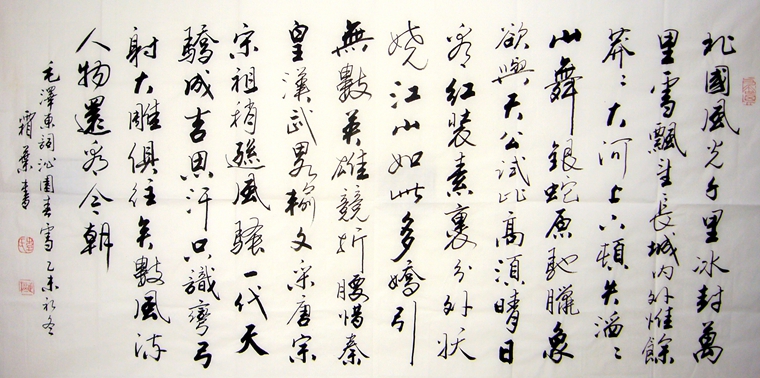 北國風光千里冰封萬
里雪飄望長城內外惟餘
莽〻大河上下頓失滔〻
山舞銀蛇原馳臘象
欲與天公試比高須晴日
看紅裝素裹分外妖
嬈江山如此多嬌引
無數英雄競折腰惜秦
皇漢武畧輸文采唐宗
宋祖稍遜風騷一代天
驕成吉思汗只識彎弓
射大雕俱往矣數風流
人物還看今朝
毛澤東詞沁園春雪乙未初冬
霜葉書